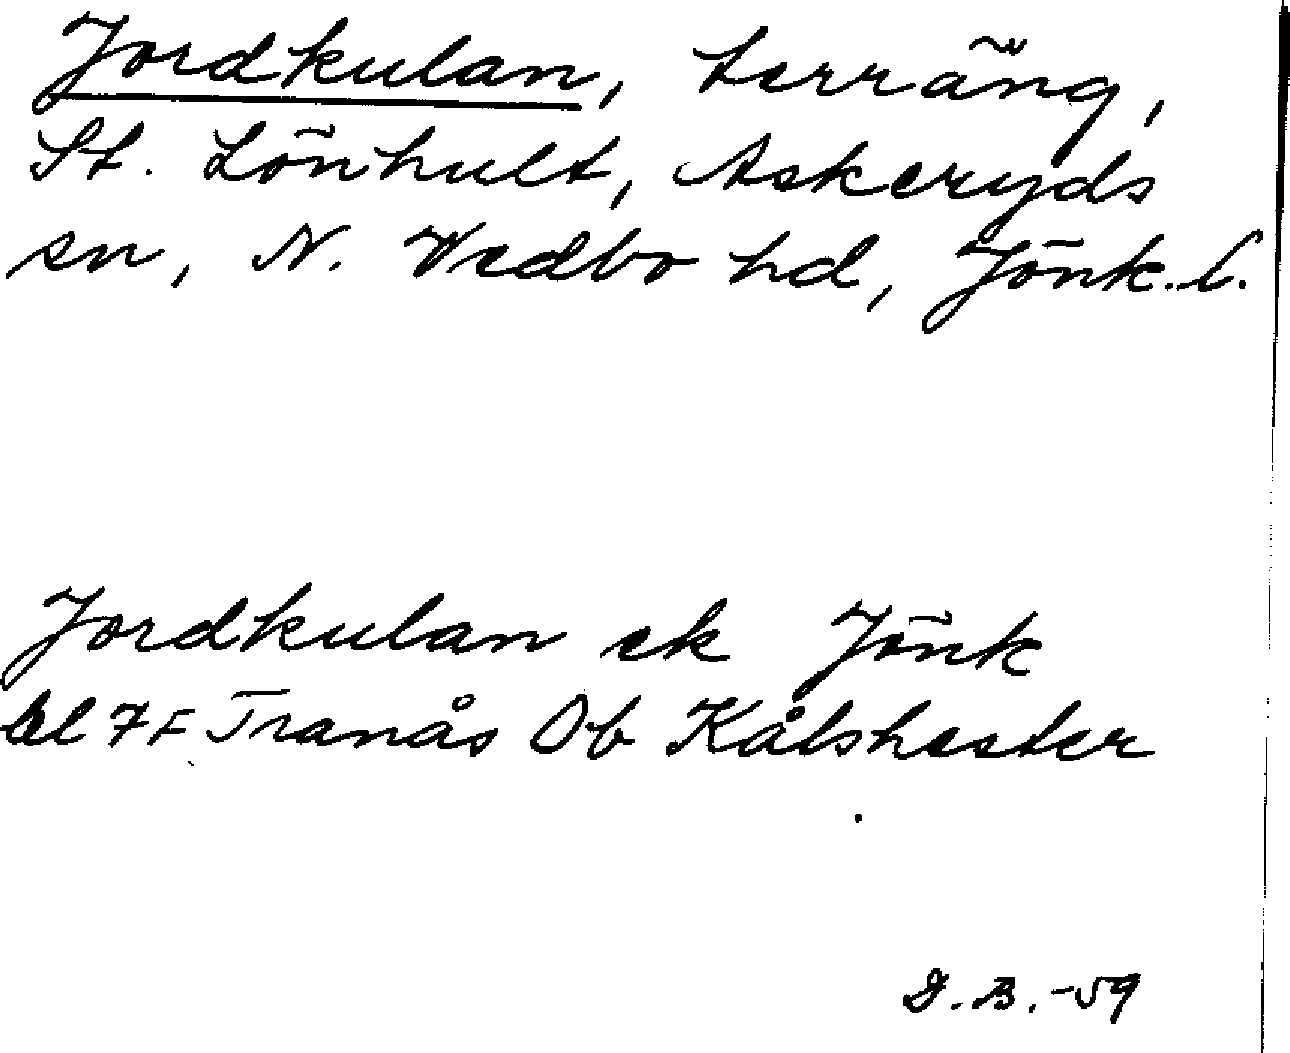 Jordkulan, terräng,
St. Lönhult, Askeryds
sn, N. Vedbo hd, Jönk. l.
Jordkulan ek Jönk
bl 7F Tranås Ob Kålshester
D.B.-59